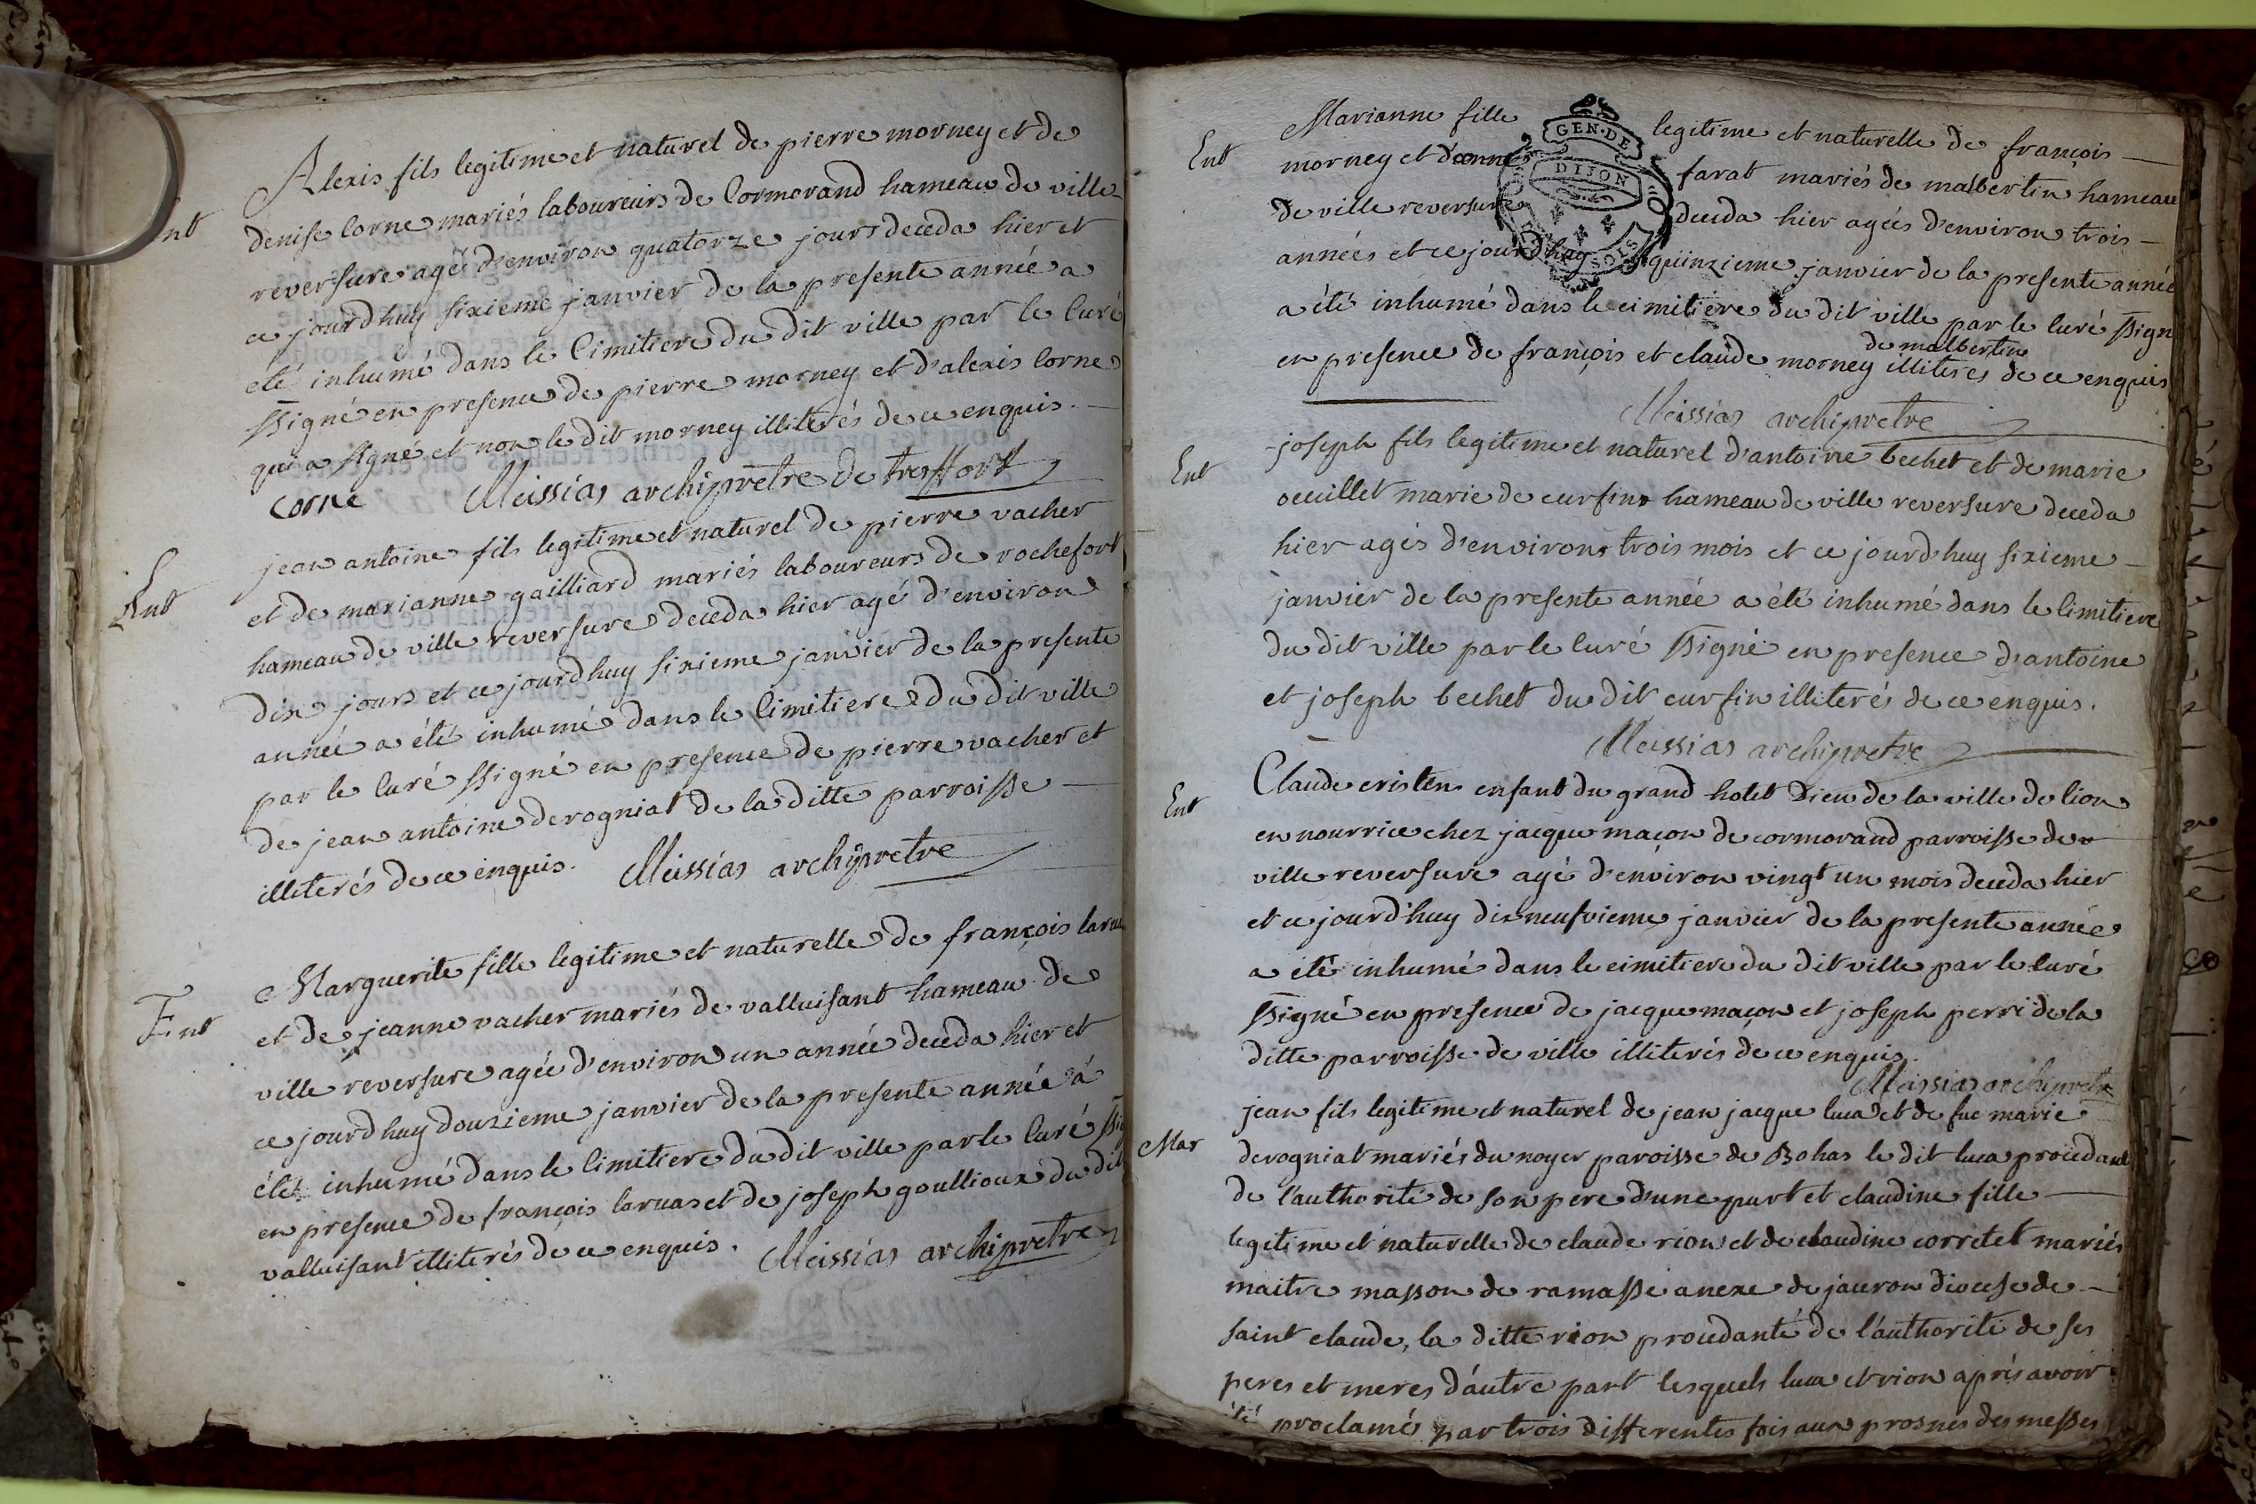 Alexis fils legitime et naturel de pierre morney et de
Ent
denise Corne mariés laboureurs de Cormorand hameau de ville
reversure agée d'environ quatorze jours deceda hier et
ce jourd'huy sixieme janvier de la presente année a
été inhumé dans le Cimitiere du dit ville par le Curé
ssigné en presence de pierre morney et d'alexis Corne
qui a signé et non le dit morney illiterés de ce enquis.
Corne Meissias archipretre de treffort
Ent
jean antoine fils legitime et naturel de pierre vacher
et de marianne gailliard mariés laboureurs de rochefort
hameau de ville reversure deceda hier agé d'environ
dix jours et ce jourd'huy sixieme janvier de la presente
année a été inhumé dans le Cimitiere du dit ville
par le Curé ssigné en presence de pierre vacher et
de jean antoine derogniat de la ditte parroisse
illiterés de ce enquis. Meissias archipretre
Ent
Marguerite fille legitime et naturelle de françois
et de jeanne vacher mariés de valluisant hameau de
ville reversure agée d'environ un année deceda hier et
ce jourd'huy douzieme janvier de la presente année a
été inhumé dans le Cimitiere du dit ville par le Curé
en presence de françois laruas et de joseph goullioux du dit
valluisant illiterés de ce enquis. Meissias archipretre
Marianne fille legitime et naturelle de françois
GEN·DE
DIJON
Ent
morney et d'anne farat mariés de malbertin hameau
de ville reversure deceda hier agées d'environ trois
années et ce jourd'huy quinzieme janvier de la presente année
a été inhumé dans le cimitiere du dit ville par le Curé ssign
de malbertin
en presence de françois et claude morney illiteres de ce enquis
Meissias archipretre
Ent
joseph fils legitime et naturel d'antoine bechet et de marie
oeuillet marie de curfin hameau de ville reversure deceda
hier agés d'environ trois mois et ce jourd'huy sixieme
janvier de la presente année a été inhumé dans le Cimitiere
du dit ville par le Curé ssigné en presence d'antoine
et joseph bechet du dit curfin illiterés de ce enquis.
Meissias archipretre
Ent
Claude cristin enfant du grand hotel Dieu de la ville de lion
en nourrice chez jacque maçon de cormorand parroisse de
ville reversure agé d'environ vingt un mois deceda hier
et ce jourd'huy disneufvieme janvier de la presente année
a été inhumé dans le cimitiere du dit ville par le Curé
ssigné en presence de jacque maçon et joseph perri de la
ditte parroisse de ville illiterés de ce enquis.
Meissias archipretre
jean fils legitime et naturel de jean jacque luca et de fue marie
Mar
derogniat mariés du noyer paroisse de Bohas le dit luca procedant
de l'authorité de son pere d'une part et claudine fille
legitime et naturelle de claude rion et de claudine corretet mariés
maitre masson de ramasse anexe de jaseron diocese de
saint claude, la ditte rion procedante de l'authorité de ses
peres et meres d'autre part lesquels luca et rion aprés avoir
été proclamés par trois differentes fois aux prosnes des messes